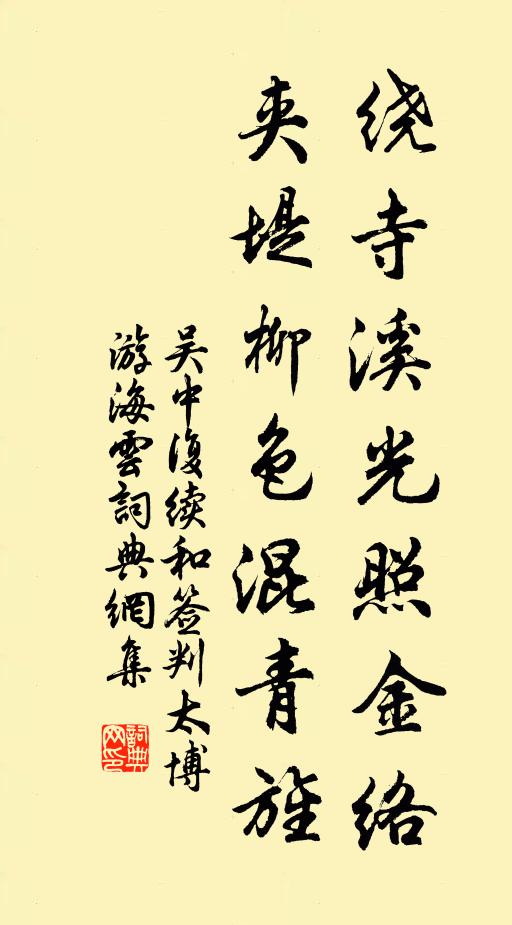 绕寺溪光照金络
夹堤柳色混青旌
吴中复续和签判太博
游海雲詞典網集
詞典网印